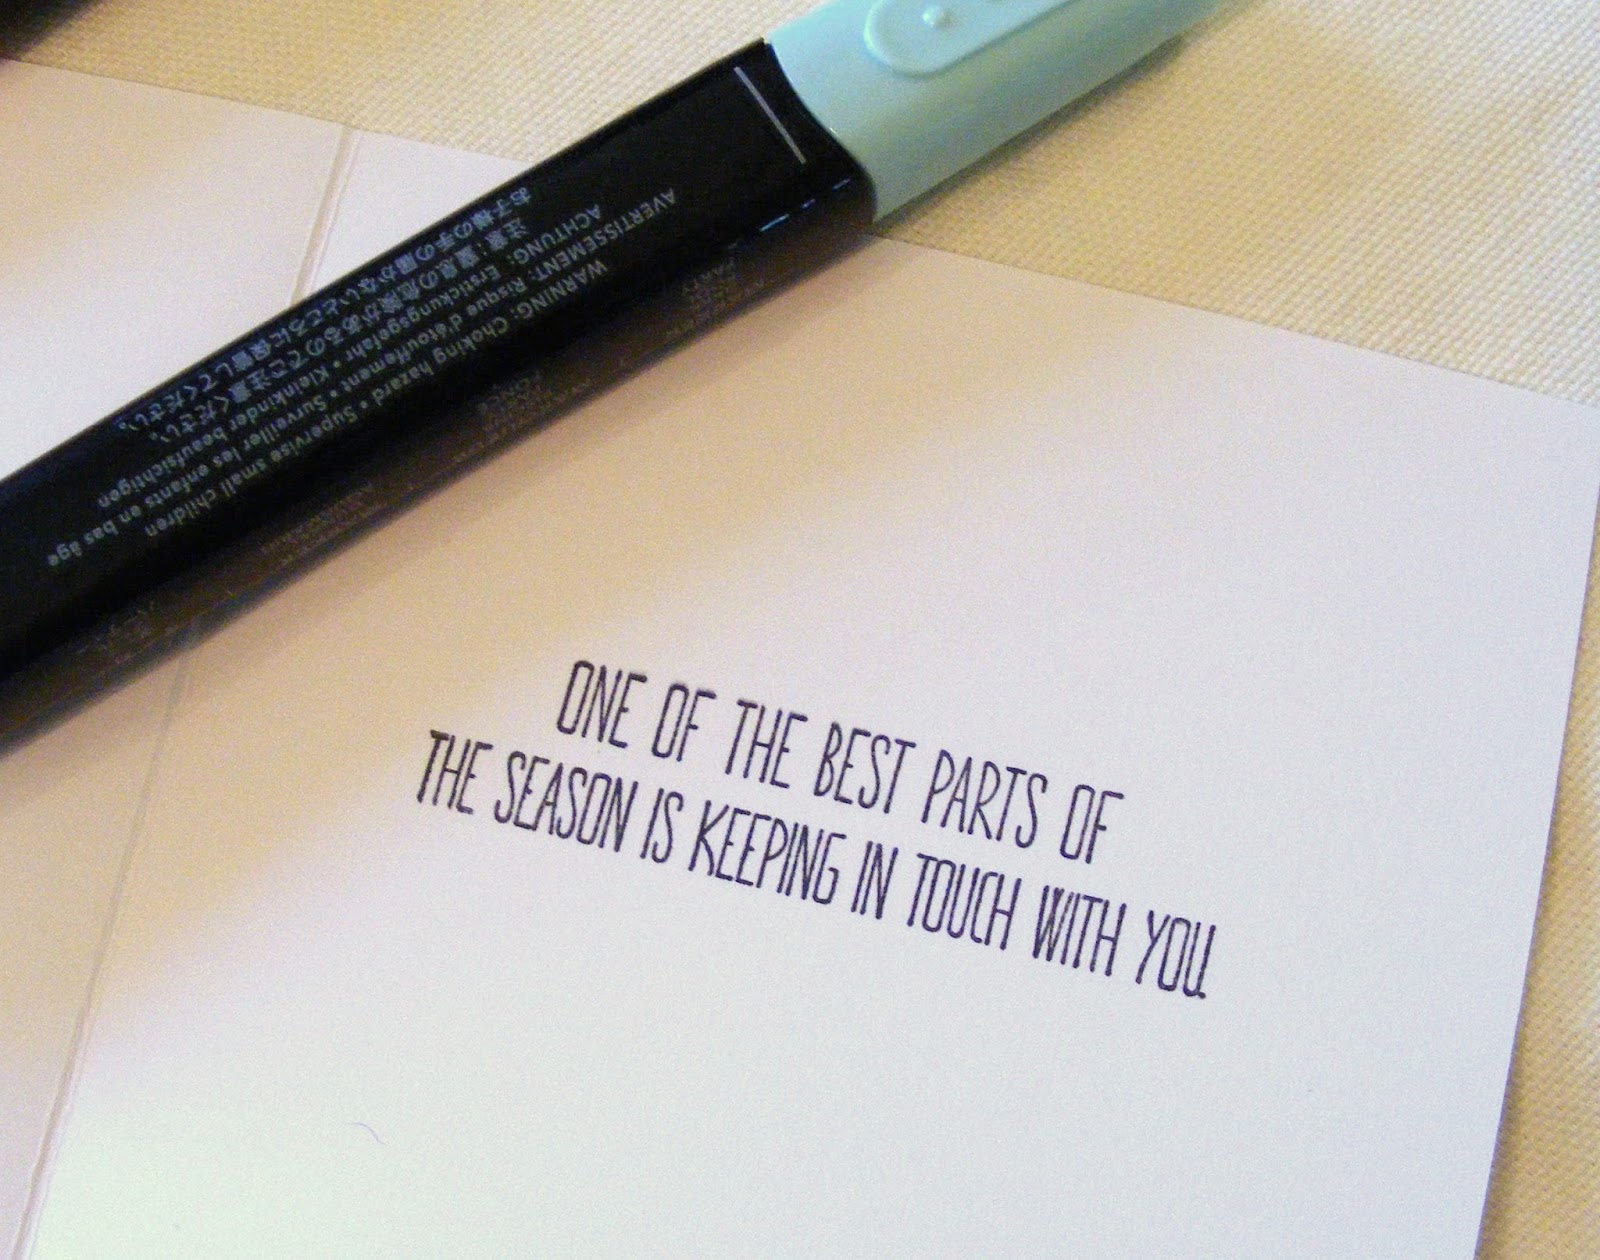 AVERTISSEMENT: Risque d'étouffement • Surveiller les enfants en bas âge
WARNING: Choking hazard • Supervise small children
ACHTUNG: Erstickungsgefahr • Kleinkinder beaufsichtigen
注意:窒息の危険があるのでご注意ください。
お子様の手の届かないところに保管してください。
ONE OF THE BEST PARTS OF
THE SEASON IS KEEPING IN TOUCH WITH YOU